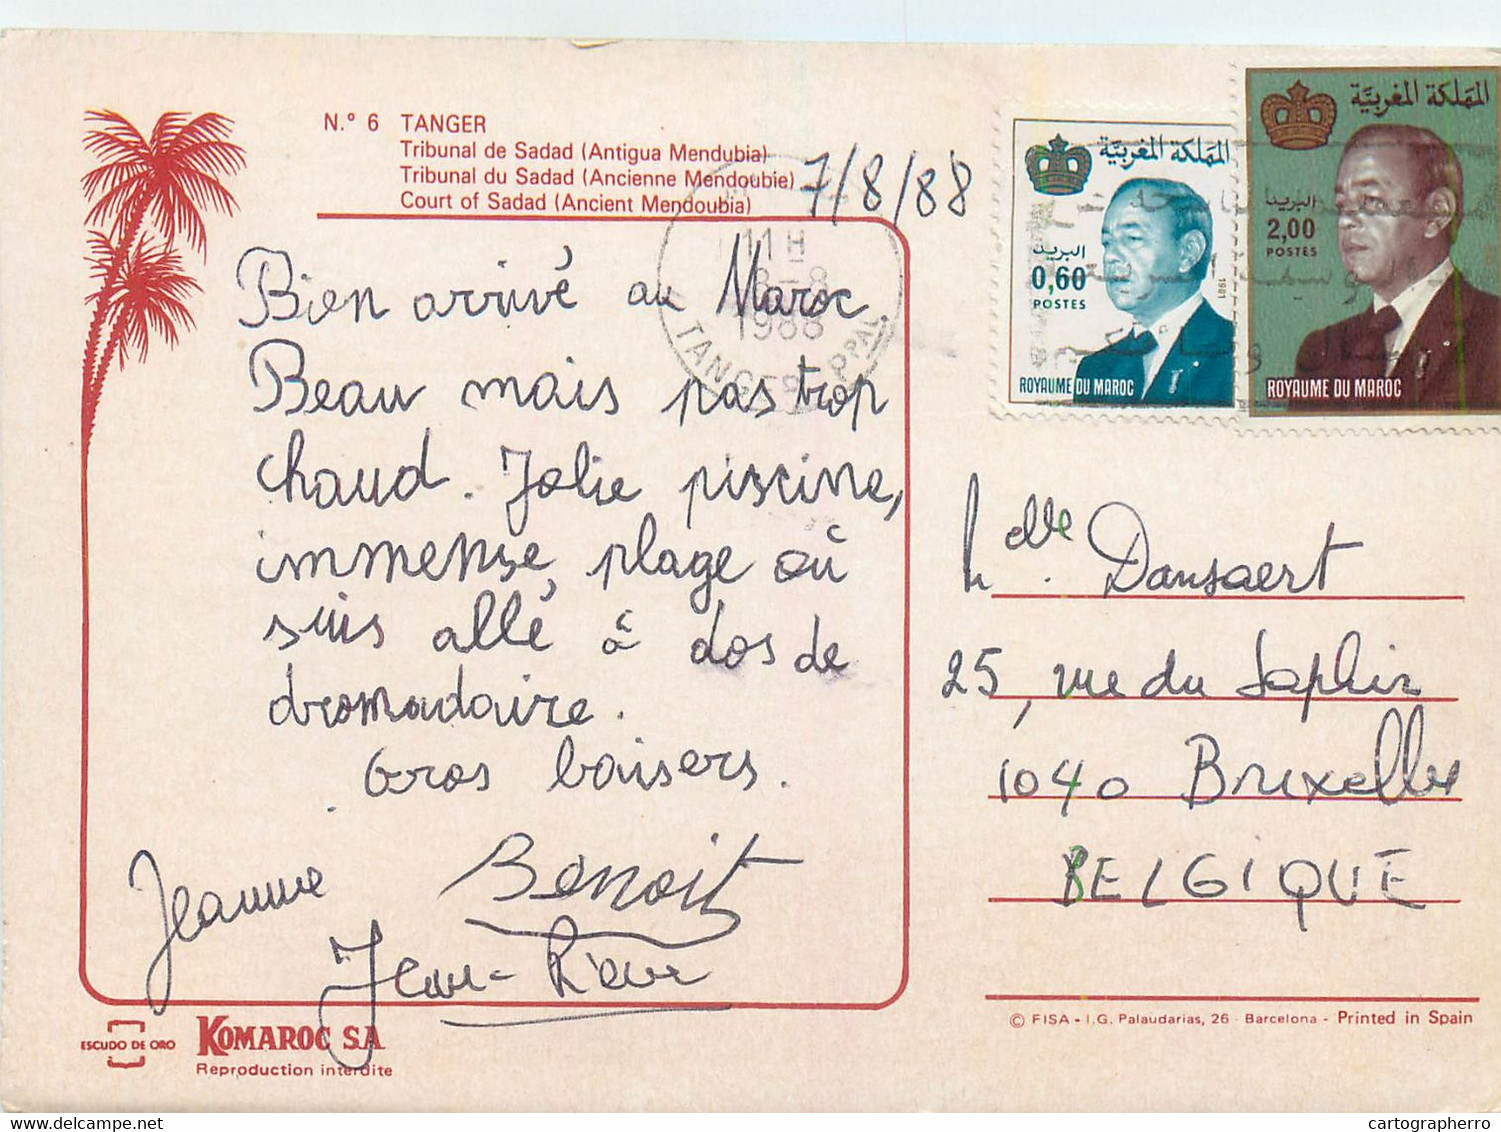 N.º 6 TANGER
Tribunal de Sadad (Antigua Mendubia)
Tribunal du Sadad (Ancienne Mendoubie)
Court of Sadad (Ancient Mendoubia)
7/8/88
11 H
8-8
1988
TANGER PPAL
المملكة المغربية
البريد
0,60
POSTES
1981
ROYAUME DU MAROC
المملكة المغربية
البريد
2,00
POSTES
ROYAUME DU MAROC
Bien arrivé au Maroc.
Beau mais pas trop
chaud. Jolie piscine,
immense plage où
suis allé à dos de
dromadaire.
Gros baisers.
Jeanne Benoit
Jean-
Melle Dansaert
25, rue du Saphir
1040 Bruxelles
BELGIQUE
ESCUDO DE ORO
KOMAROC S.A.
Reproduction interdite
© FISA - I.G. Palaudarias, 26 - Barcelona - Printed in Spain
cartographerro